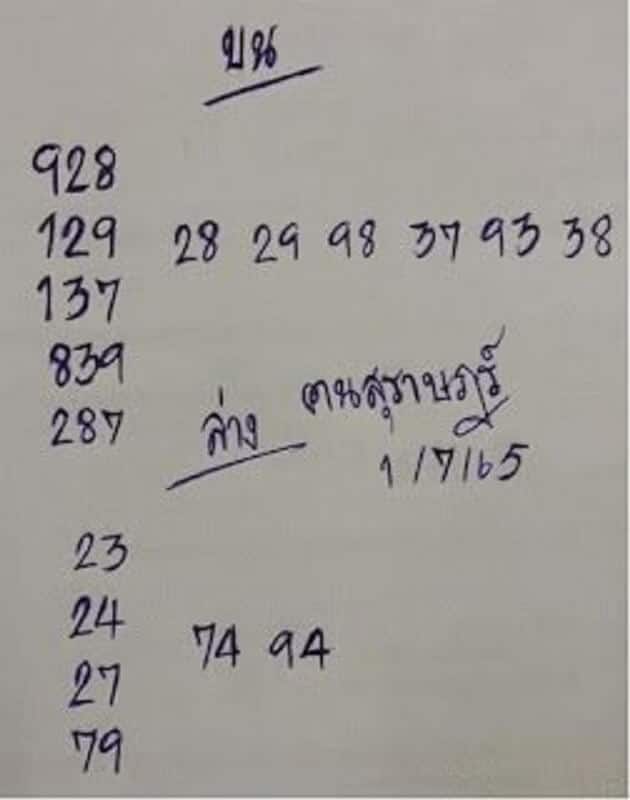 บน
928
129 28 29 98 37 93 38
137
839
287
ล่าง คนสุราษฎร์
1/7/65
23
24
74 94
27
79